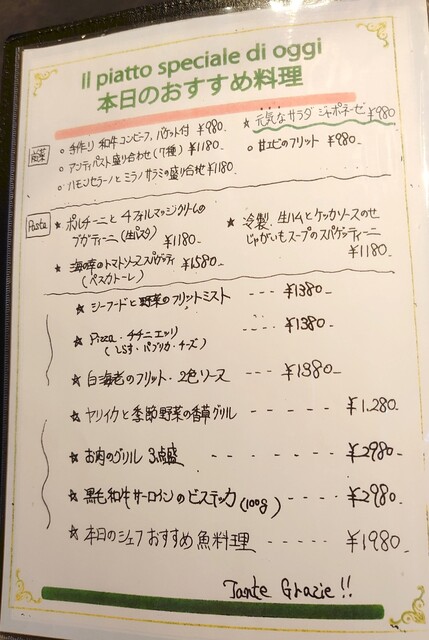 Il piatto speciale di oggi
本日のおすすめ料理
前菜
○ 手作り 和牛コンビーフ、バケット付 ¥980-
○ アンティパスト盛り合わせ(7種) ¥1180-
○ ハモンセラーノとミラノサラミの盛り合せ ¥1180-
☆ 元気なサラダ ジャポネーゼ ¥980
○ 甘エビのフリット ¥980-
Pasta
★ ポルチーニと4フォルマッジクリームの
ブガティーニ(生パスタ) ¥1180-
★ 海の幸のトマトソーススパゲッティ ¥1580-
(ペスカトーレ)
★ 冷製 生ハムとケッカソースのせ
じゃがいもスープのスパゲッティーニ
¥1180-
★ シーフードと野菜のフリットミスト --- ¥1380-
★ Pizza・チチニエッリ --- ¥1380-
(しらす・パプリカ・チーズ)
☆ 白海老のフリット・2色ソース --- ¥1380-
☆ ヤリイカと季節野菜の香草グリル ----- ¥1.280-
☆ お肉のグリル 3点盛 ------ ¥2980-
☆ 黒毛和牛サーロインのビステッカ(100g) ---- ¥2980-
☆ 本日のシェフおすすめ魚料理 ----- ¥1980-
Tante Grazie!!